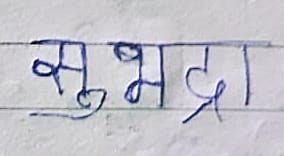 सुभद्रा